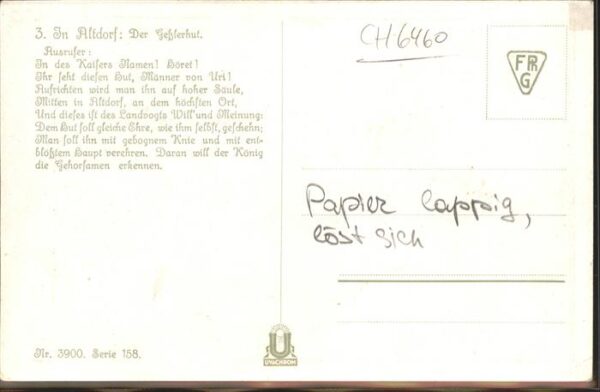 3. In Altdorf: Der Geßlerhut.
Ausrufer:
In des Kaisers Namen! Höret!
Ihr seht diesen Hut, Männer von Uri!
Aufrichten wird man ihn auf hoher Säule,
Mitten in Altdorf, an dem höchsten Ort,
Und dieses ist des Landvogts Will' und Meinung:
Dem Hut soll gleiche Ehre, wie ihm selbst, geschehn;
Man soll ihn mit gebognem Knie und mit ent-
blößtem Haupt verehren. Daran will der König
die Gehorsamen erkennen.
CH-6460
FPh
G
Papier lappig,
löst sich
Nr. 3900. Serie 158.
U
UVACHROM